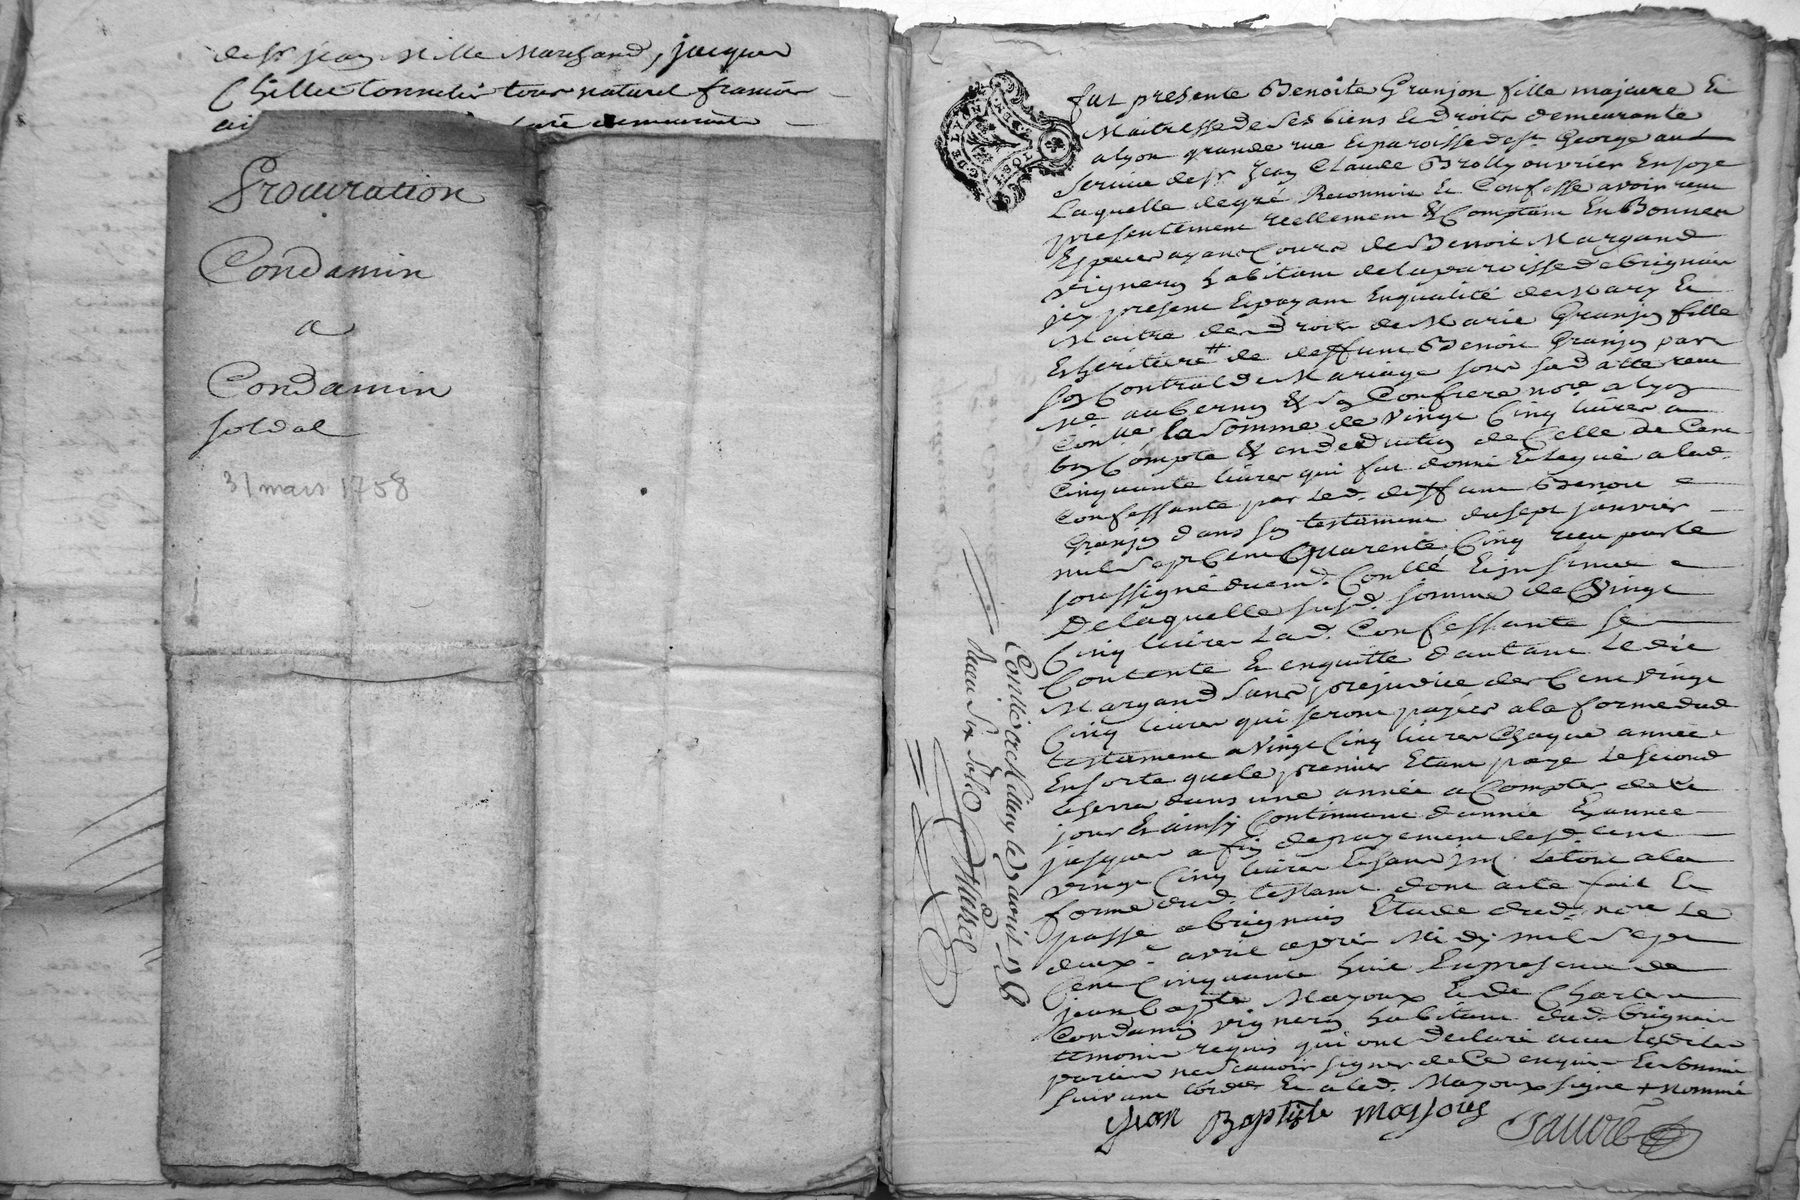 de sr jean Mille Marchand, jacques
Chillet tonnelier tous naturel francois
Procuration
Condamin
a
Condamin
soldat
31 mars 1758
G. DE LYON
fut presente Benoite Granjon fille majeure et
Maitresse de ses biens et droits demeurante
a lyon grande rue et paroisse de st George au
service de sr jean Claude Brolly ouvrier en soye
Laquelle de gré Reconnoit et Confesse avoir receu
presentement reellement et Comptant En Bonnes
Especes ayant Cours de Benoit Margand
vigneron habitant de la paroisse de brignais
icy present et payant En qualité de Mary et
Maitre des droits de Marie Granjon fille
Et heritiere de deffunt Benoit Granjon par
son Contrat de Mariage sous sa datte receu
me auberny et son Confrere nore a lyon
Conllé la Somme de Vingt Cinq livres a
bon Compte et en deduction de Celle de Cent
Cinquante livres qui fut donné et legué a lad.
Confessante par led. deffunt Benoit
Granjon dans son testament du sept janvier
mil sept Cent Quarente Cinq receu par le
soussigné duemt. Conllé et jnsinué
De laquelle susd. somme de Vingt
Cinq livres Lad. Confessante se
Contente et en quitte d'autant ledit
Margand sans prejudice des Cent vingt
Cinq livres qui seront payées a la forme dud.
testament a Vingt Cinq livres Chaque année
En sorte que le premier Etant payé le second
Le serra dans une année a Compter de ce
jour Et ainsy Continuant d'année En année
jusques a fin de payement desd. cent
vingt Cinq livres Et sans jnt. Le tout a la
forme dud. testamt. dont acte fait et
passé a brignais Etude dud. nore Le
deux avril apres Midy mil sept
Cent Cinquante huit En presence de
jean bapte Mazoux et de Charles
Condamin vigneron habitant dud. brignais
temoins requis qui ont declaré avec lesdites
parties ne scavoir signer de Ce enquis Et somme
suivant lordce Et a led. Mazoux signé + nommé
Jean Baptiste massoues
Sauvre
Conllé a Millery le 9 avril 1758
Receu six sols